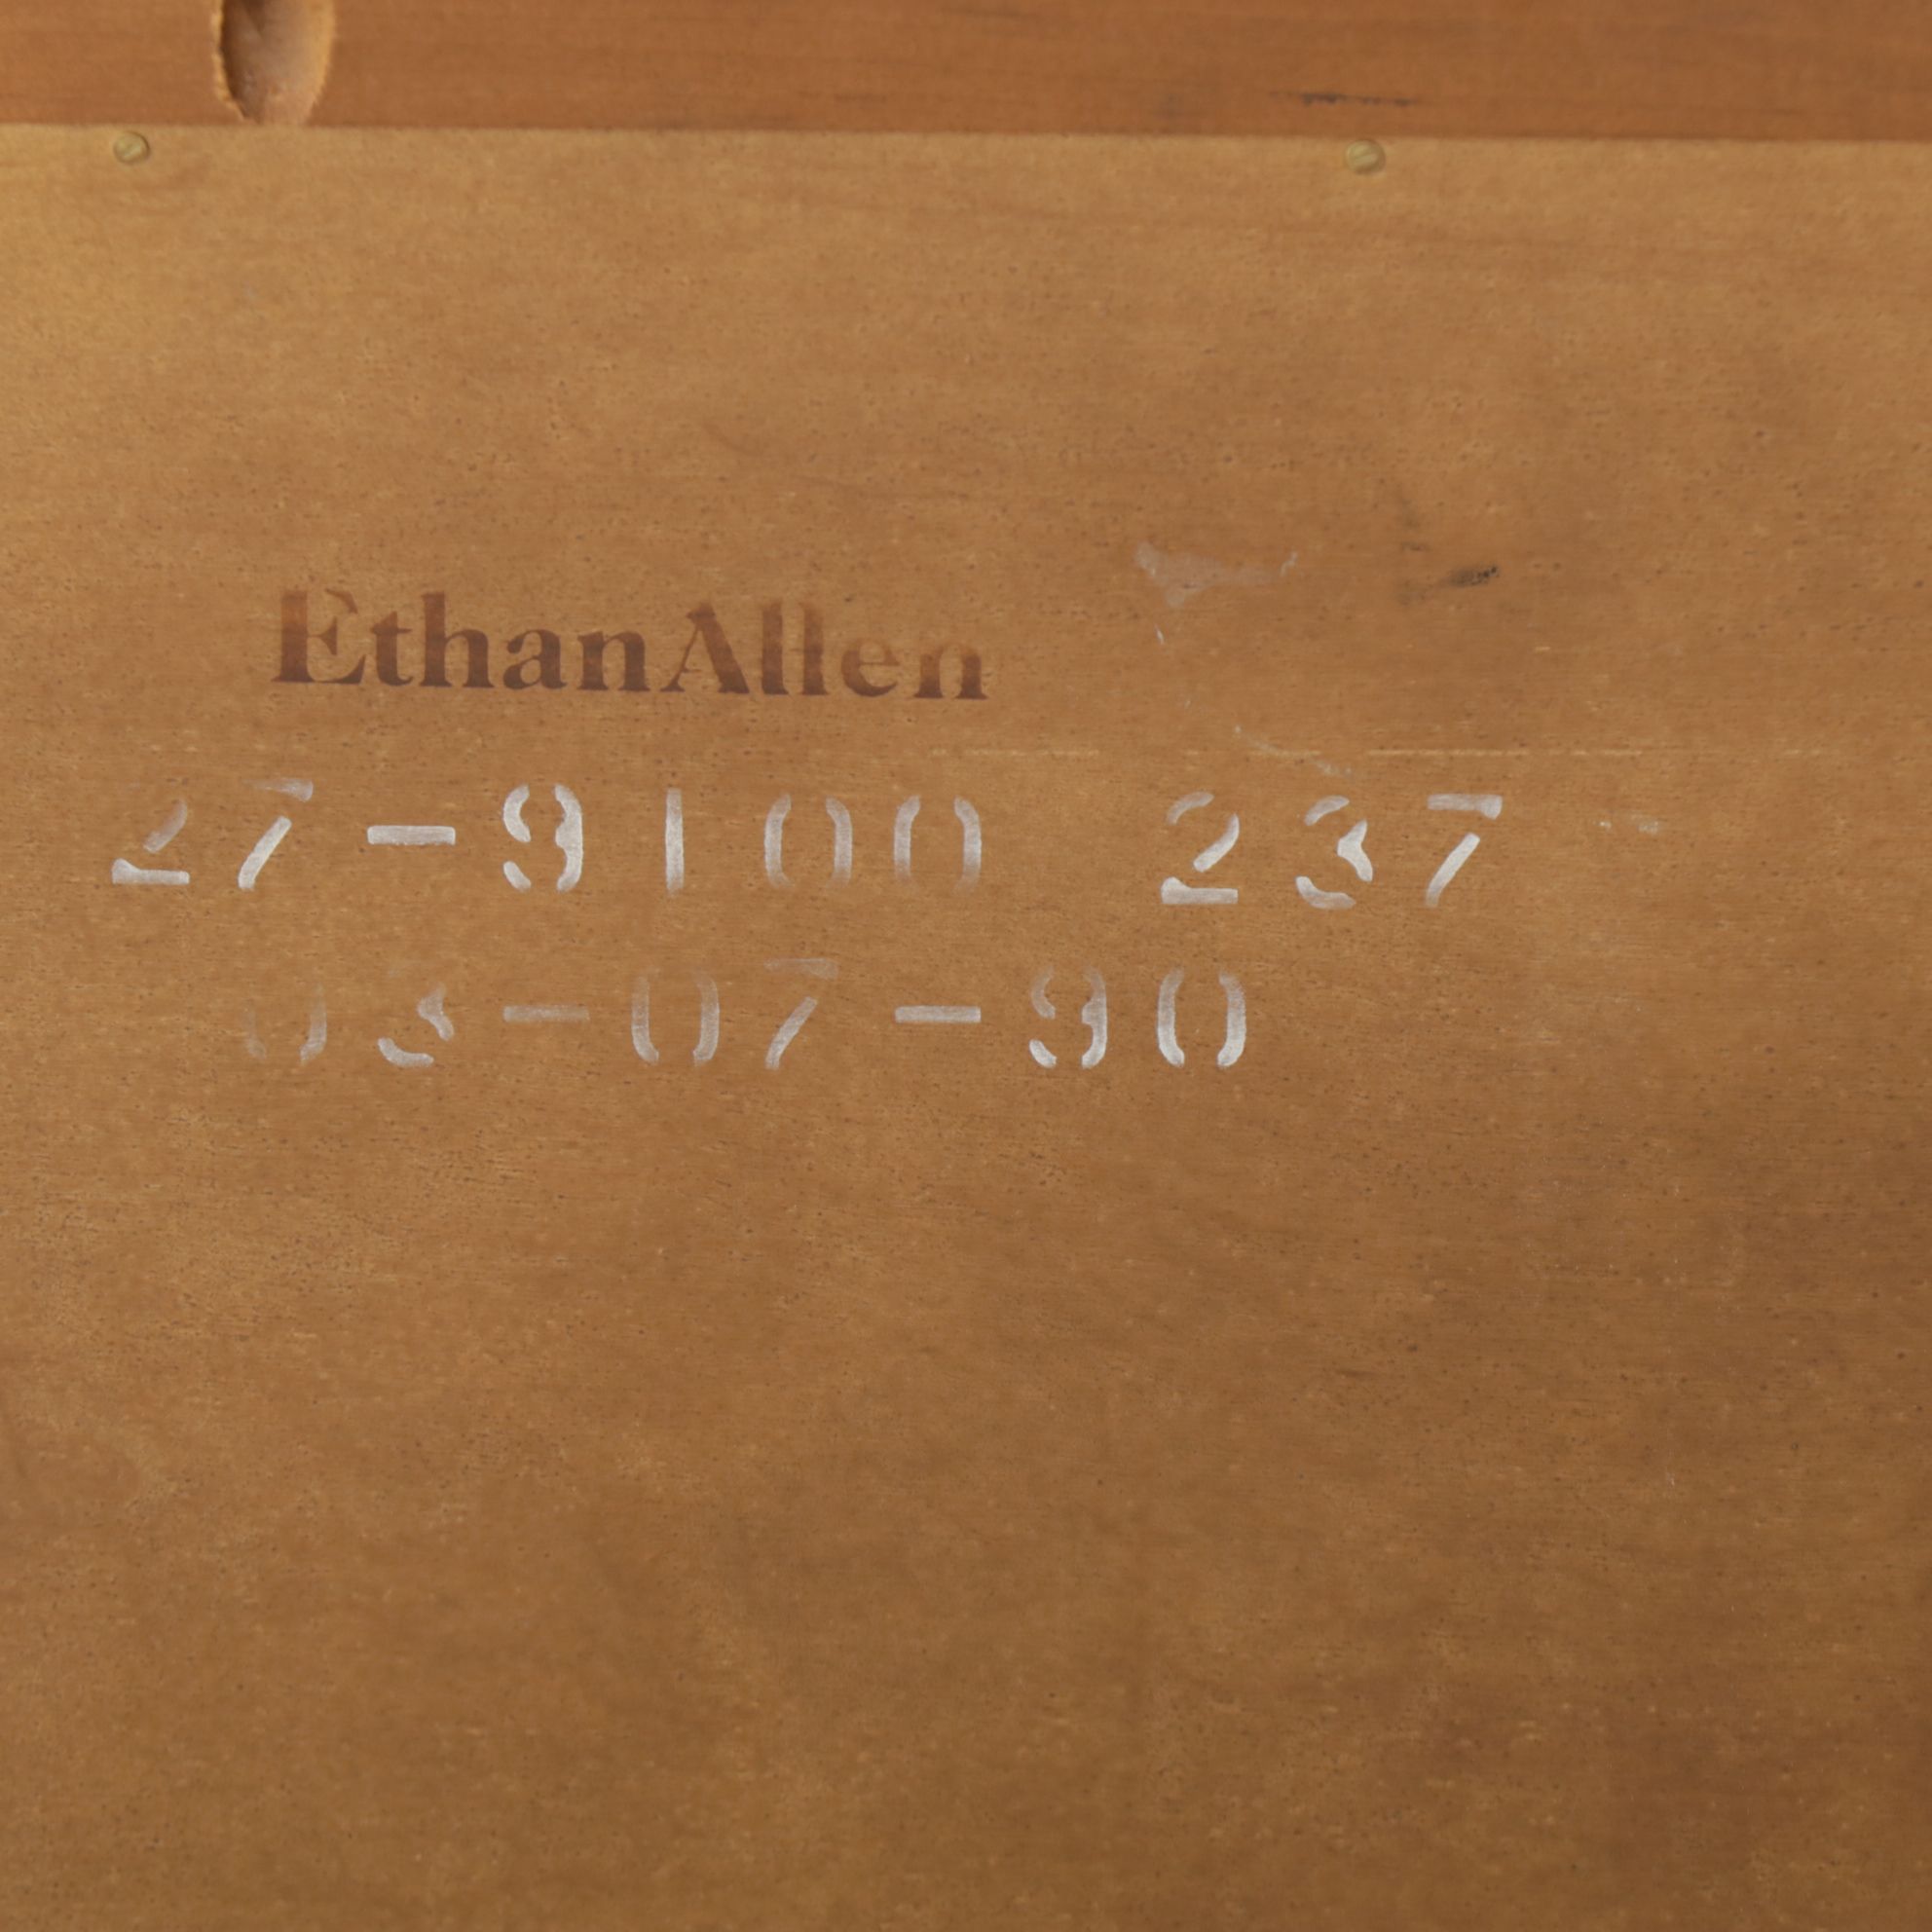 EthanAllen
27-9100 237
03-07-90